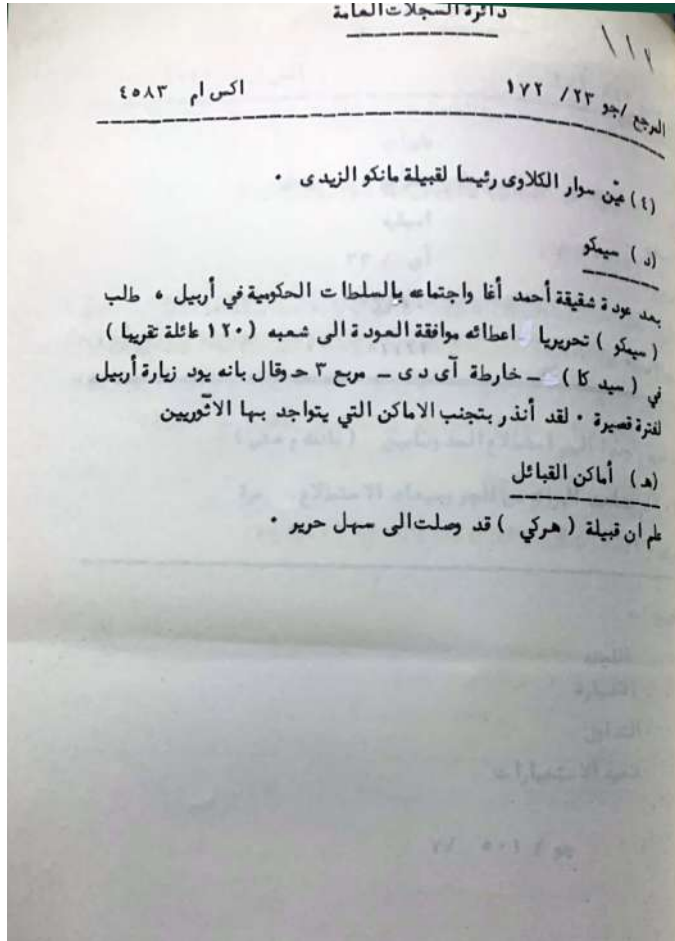 دائرة السجلات العامة
١١٢
المرجع /جو ٢٣/ ١٧٢ اكس ام ٤٥٨٣
(٤) عيّن سوار الكلاوى رئيسا لقبيلة مانكو الزيدى ٠
(د) سيمكو
بعد عودة شقيقة أحمد أغا واجتماعه بالسلطات الحكومية في أربيل ، طلب
( سيمكو ) تحريريا اعطائه موافقة العودة الى شعبه (١٢٠ عائلة تقريبا )
في ( سيد كا ) ـ خارطة آى دى ـ مربع ٣ حـ وقال بانه يود زيارة أربيل
لفترة قصيرة ٠ لقد أنذر بتجنب الاماكن التي يتواجد بها الاثّوريين
(هـ) أماكن القبائل
علم ان قبيلة ( هركي ) قد وصلت الى سهل حرير ٠